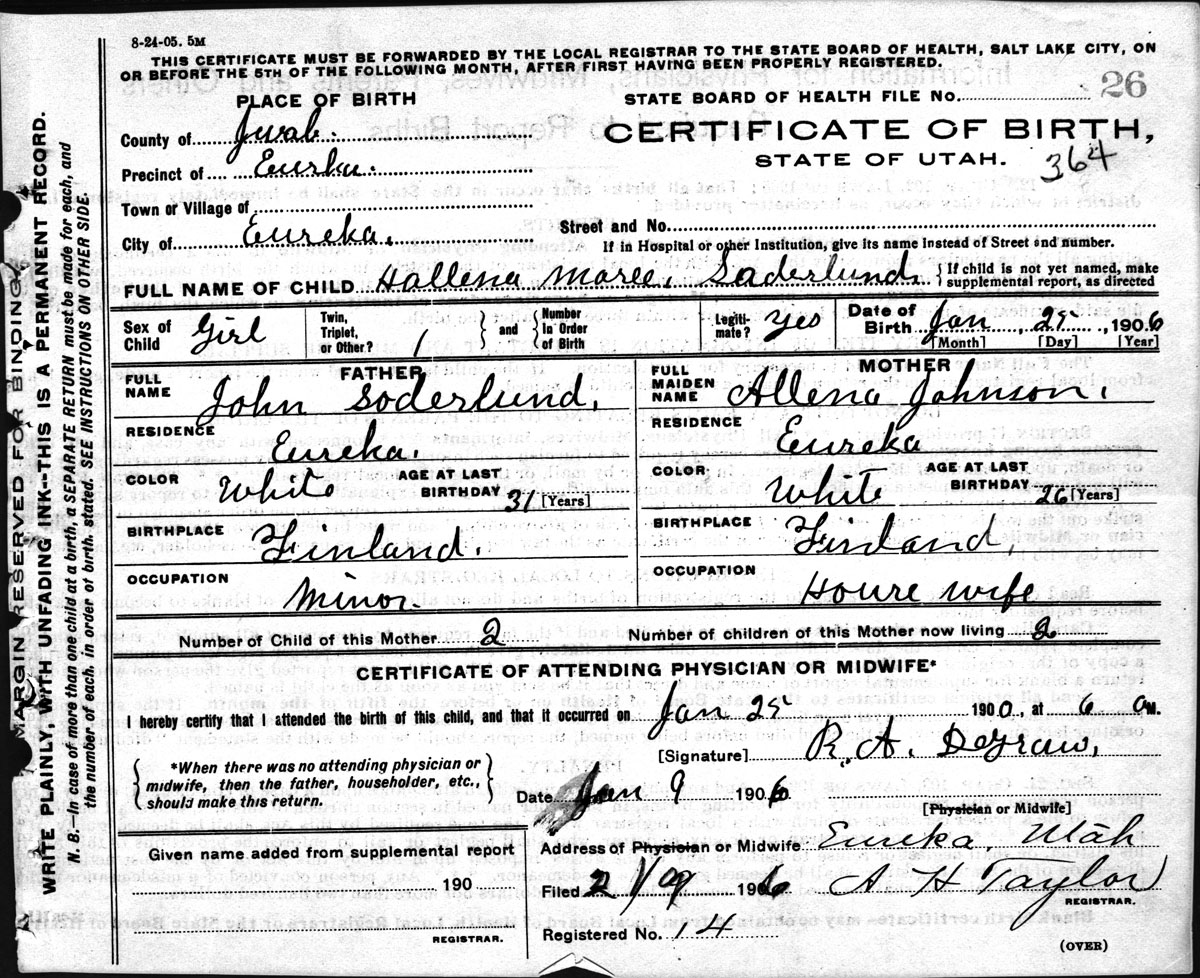 8-24-05. 5M
THIS CERTIFICATE MUST BE FORWARDED BY THE LOCAL REGISTRAR TO THE STATE BOARD OF HEALTH, SALT LAKE CITY, ON
OR BEFORE THE 5TH OF THE FOLLOWING MONTH, AFTER FIRST HAVING BEEN PROPERLY REGISTERED.
PLACE OF BIRTH
STATE BOARD OF HEALTH FILE No. 26
County of Juab.
CERTIFICATE OF BIRTH,
Precinct of Eurka.
STATE OF UTAH. 364
Town or Village of
Street and No.
City of Eureka.
If in Hospital or other Institution, give its name instead of Street and number.
FULL NAME OF CHILD Hallena Maree, Soderlund. } If child is not yet named, make supplemental report, as directed
Sex of Child Girl Twin, Triplet, or Other? 1 } and { Number in Order of Birth Legitimate? yes Date of Birth Jan, 25, 1906
[Month] [Day] [Year]
FATHER MOTHER
FULL NAME John Soderlund. FULL MAIDEN NAME Allena Johnson.
RESIDENCE Eureka. RESIDENCE Eureka
COLOR White AGE AT LAST BIRTHDAY 31 [Years] COLOR White AGE AT LAST BIRTHDAY 26 [Years]
BIRTHPLACE Finland. BIRTHPLACE Finland.
OCCUPATION Minor. OCCUPATION House wife
Number of Child of this Mother 2 Number of children of this Mother now living 2
CERTIFICATE OF ATTENDING PHYSICIAN OR MIDWIFE*
I hereby certify that I attended the birth of this child, and that it occurred on Jan 25 1900, at 6 a M.
[Signature] R. A. Degraw,
{ *When there was no attending physician or midwife, then the father, householder, etc., should make this return. }
Date Jan 9 1906
[Physician or Midwife]
Given name added from supplemental report
Address of Physician or Midwife Eureka, Utah
190
Filed 2/9 1906 A H Taylor
REGISTRAR.
REGISTRAR.
Registered No. 14
(OVER)
MARGIN RESERVED FOR BINDING
WRITE PLAINLY, WITH UNFADING INK--THIS IS A PERMANENT RECORD.
N. B.—In case of more than one child at a birth, a SEPARATE RETURN must be made for each, and
the number of each, in order of birth, stated. SEE INSTRUCTIONS ON OTHER SIDE.